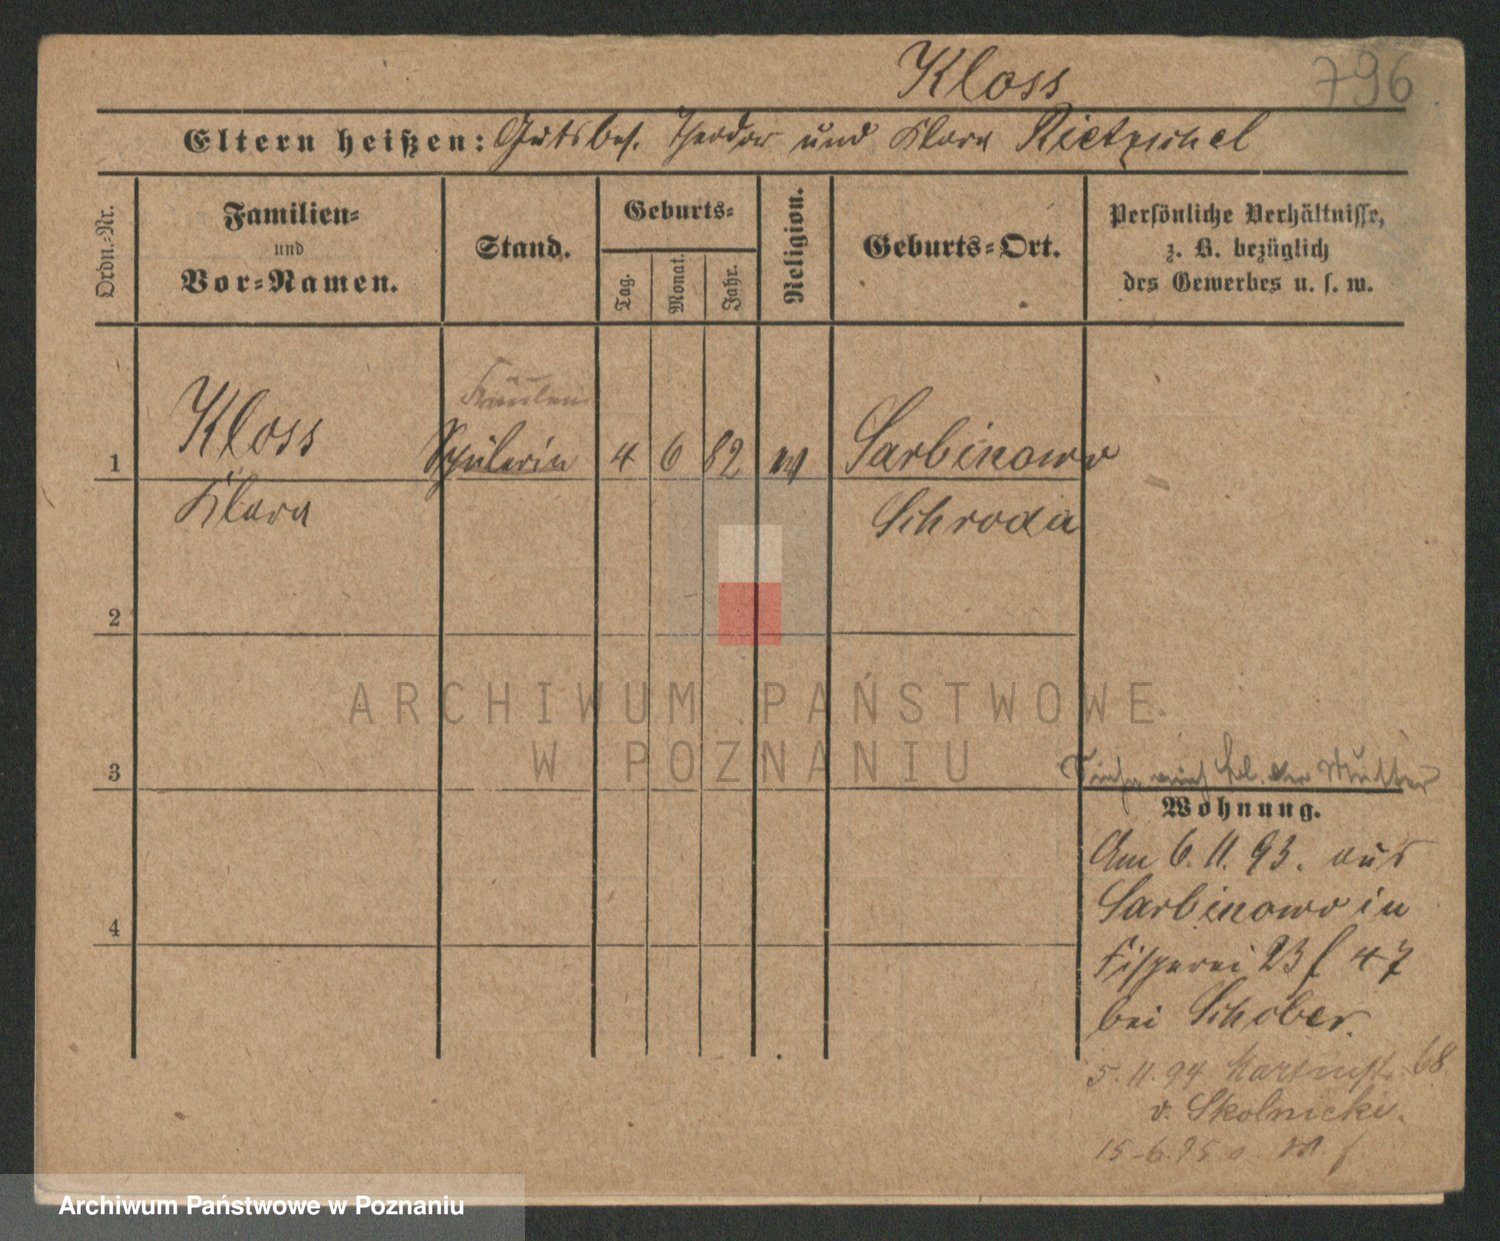 Kloss
796
Eltern heißen: Gutsbes. Theodor und Klara Rietzschel
Ordn.-Nr.
Familien-
und
Vor-Namen.
Stand.
Geburts-
Tag.
Monat.
Jahr.
Religion.
Geburts-Ort.
Persönliche Verhältnisse,
z. B. bezüglich
des Gewerbes u. s. w.
Fräulein
1 Kloss Schülerin 4 6 82 Sarbinowo
Klara Schroda
2
ARCHIWUM PAŃSTWOWE
W POZNANIU
3
Siehe auch der Mutter
Wohnung.
Am 6.11.93. aus
Sarbinowo in
Fischerei 23 f 47
bei Schober.
4
5.11.94 68
v. Skolnicki.
15-6.95
Archiwum Państwowe w Poznaniu